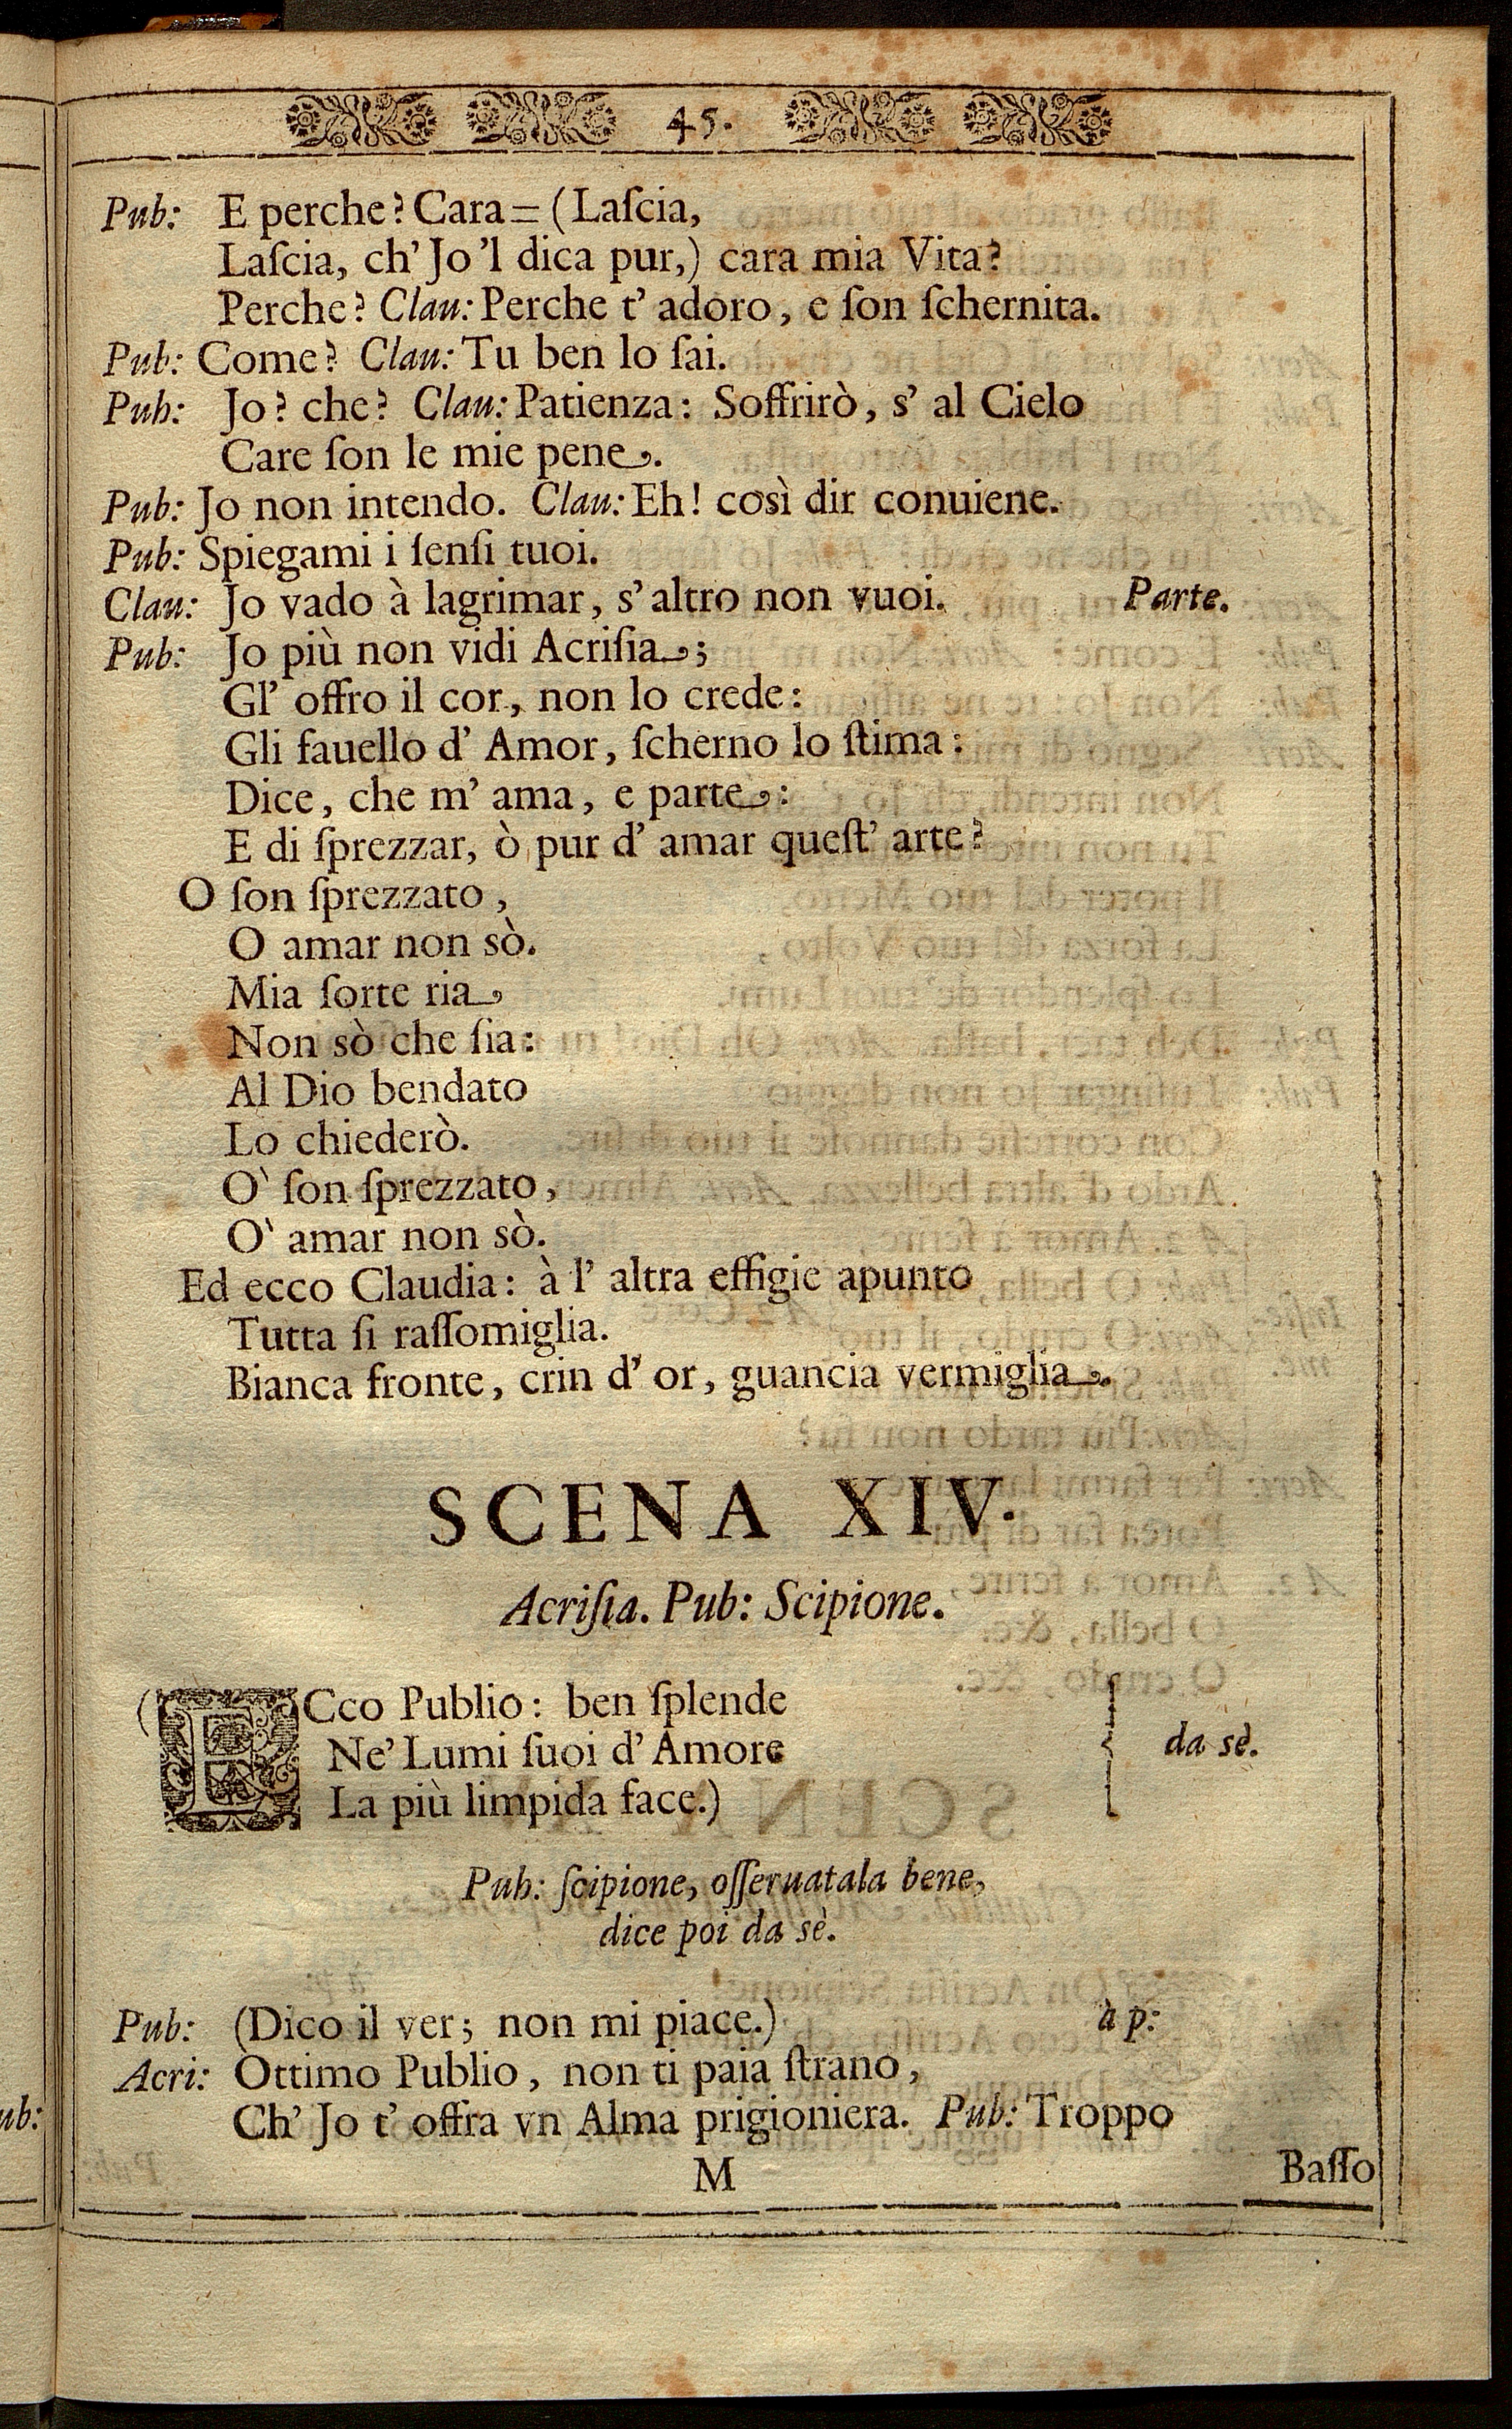 45.
Pub: E perche? Cara= (Laſcia,
Laſcia, ch' Jo 'l dica pur,) cara mia Vita?
Perche? Clau: Perche t' adoro, e ſon ſchernita.
Pub: Come? Clau: Tu ben lo ſai.
Pub: Jo? che? Clau: Patienza: Soffrirò, s' al Cielo
Care ſon le mie pene.
Pub: Jo non intendo. Clau: Eh! così dir conuiene.
Pub: Spiegami i ſenſi tuoi.
Clau: Jo vado à lagrimar, s' altro non vuoi. Parte.
Pub: Jo più non vidi Acriſia;
Gl' offro il cor, non lo crede:
Gli fauello d' Amor, ſcherno lo ſtima:
Dice, che m' ama, e parte:
E di ſprezzar, ò pur d' amar queſt' arte?
O ſon ſprezzato,
O amar non sò.
Mia ſorte ria
Non sò che ſia:
Al Dio bendato
Lo chiederò.
O' ſon ſprezzato,
O' amar non sò.
Ed ecco Claudia: à l' altra effigie apunto
Tutta ſi raſſomiglia.
Bianca fronte, crin d' or, guancia vermiglia.
SCENA XIV.
Acriſia. Pub: Scipione.
(ECco Publio: ben ſplende
Ne' Lumi ſuoi d' Amore da sè.
La più limpida face.)
Pub: ſcipione, oſſeruatala bene,
dice poi da sè.
Pub: (Dico il ver; non mi piace.) à p:
Acri: Ottimo Publio, non ti paia ſtrano,
Ch' Jo t' offra vn Alma prigioniera. Pub: Troppo
M Baſſo
ub: